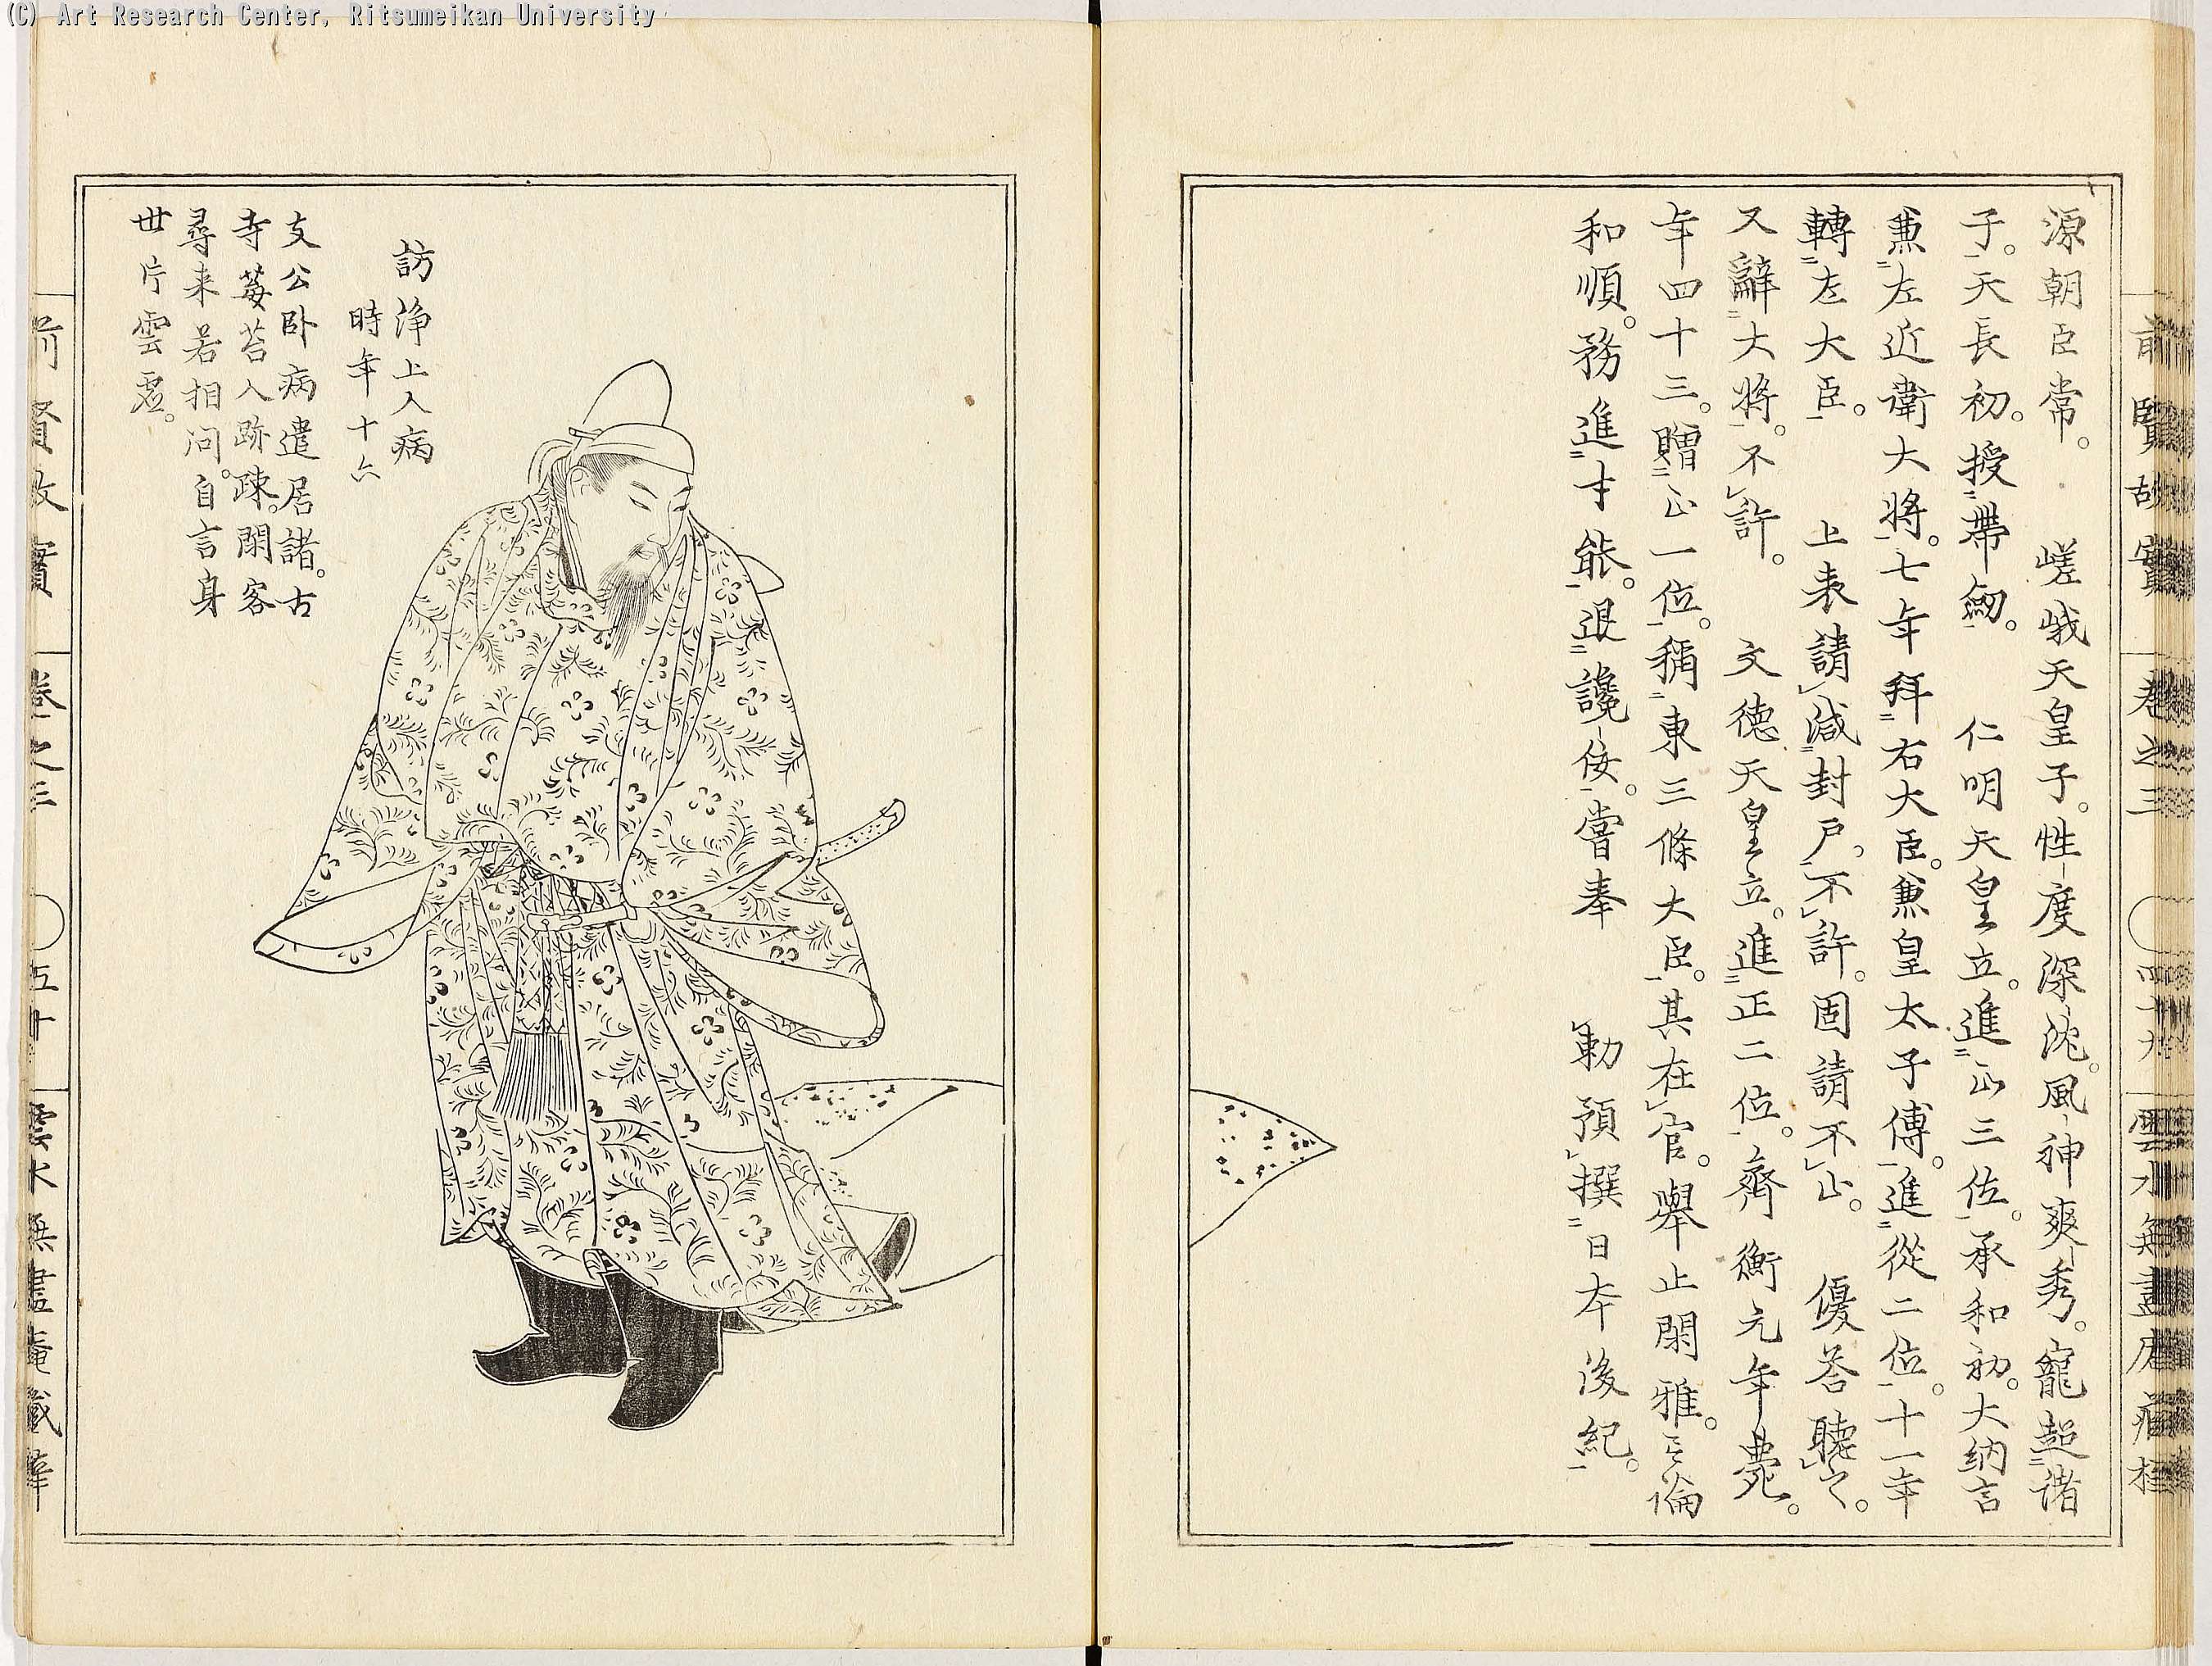 (C) Art Research Center, Ritsumeikan University
源朝臣常。嵯峨天皇子。性度深沈。風神爽秀。寵超諸
子。天長初。授帶劔。仁明天皇立。進正三位。承和初。大納言
兼左近衛大將。七年拜右大臣。兼皇太子傅。進從二位。十一年
轉左大臣。上表請減封戸。不許。固請不止。優荅聴之。
又辭大將。不許。文德天皇立。進正二位。齊衡元年薨。
年四十三。贈正一位。稱東三條大臣。其在官。舉止閑雅。言論
和順。務進才能。退讒佞。嘗奉勅預撰日本後紀。
前賢故實 卷之三 四十九
訪淨上人病
時年十六
支公卧病遣居諸。古
寺莓苔人跡疎。閑客
尋来若相问。自言身
世片雲虚。
前賢故實 卷之三 五十 雲水無盡庵藏梓